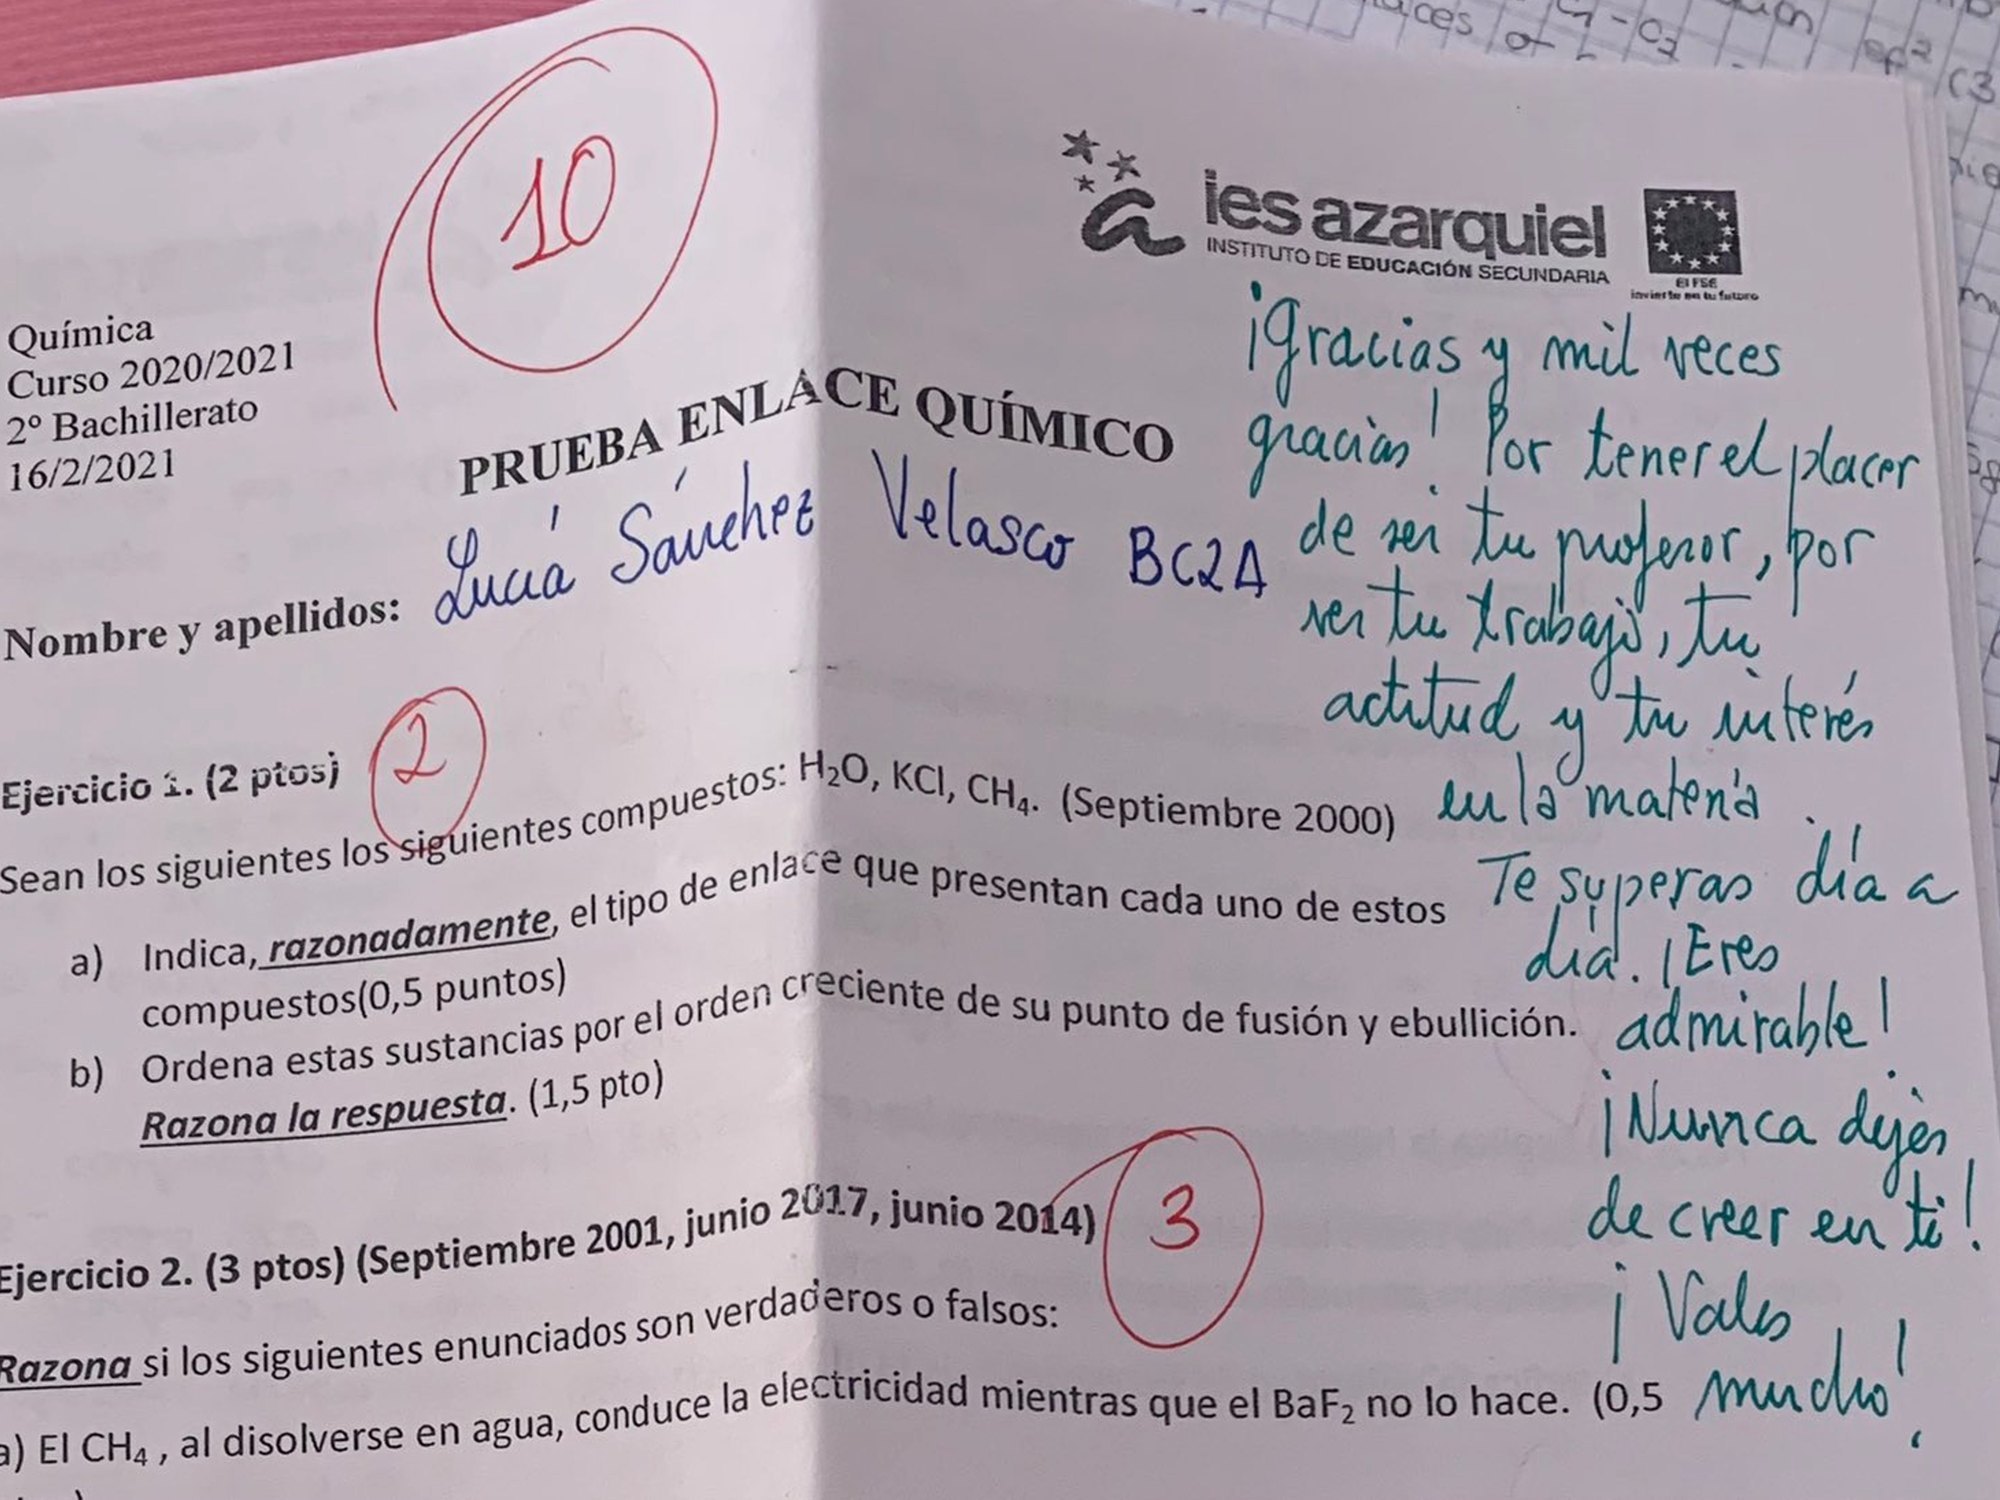 10
ies azarquiel
INSTITUTO DE EDUCACIÓN SECUNDARIA
El FSE
invierte en tu futuro
Química
Curso 2020/2021
2º Bachillerato
16/2/2021
PRUEBA ENLACE QUÍMICO
Nombre y apellidos: Lucía Sánchez Velasco BC2A
¡Gracias y mil veces
gracias! Por tener el placer
de ser tu profesor, por
ver tu trabajo, tu
actitud y tu interés
en la materia.
Te superas día a
día. ¡Eres
admirable!
¡Nunca dejes
de creer en ti!
¡Vales
mucho!
Ejercicio 1. (2 ptos) 2
Sean los siguientes los siguientes compuestos: H₂O, KCl, CH₄. (Septiembre 2000)
a) Indica, razonadamente, el tipo de enlace que presentan cada uno de estos
compuestos(0,5 puntos)
b) Ordena estas sustancias por el orden creciente de su punto de fusión y ebullición.
Razona la respuesta. (1,5 pto)
Ejercicio 2. (3 ptos) (Septiembre 2001, junio 2017, junio 2014) 3
Razona si los siguientes enunciados son verdaderos o falsos:
a) El CH₄ , al disolverse en agua, conduce la electricidad mientras que el BaF₂ no lo hace. (0,5